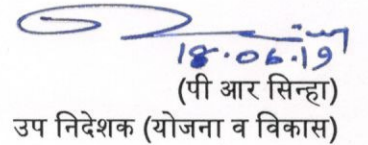 18.06.19
(पी आर सिन्हा)
उप निदेशक (योजना व विकास)